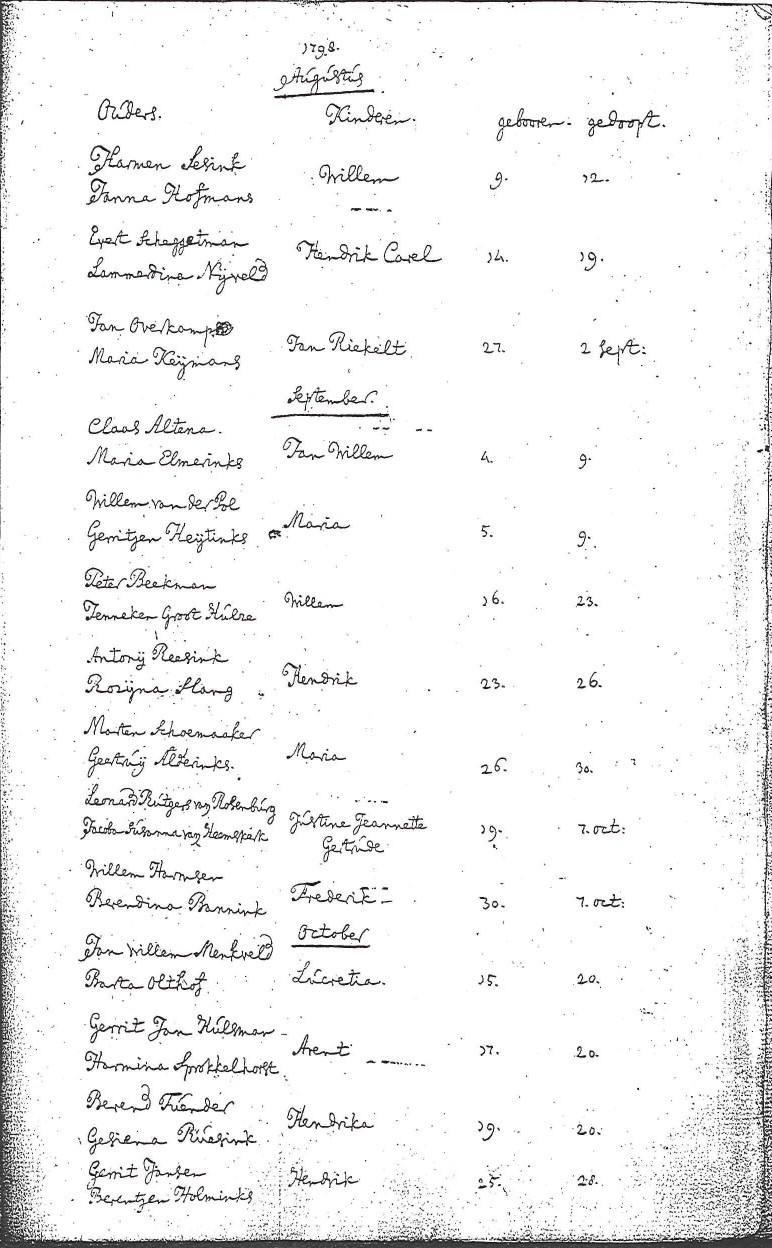 1798.
Augustus
Ouders. Kinderen. gebooren. gedoopt.
Harmen Sesink
Willem 9. 12.
Janna Hofmans
Evert Scheggetman
Hendrik Carel 14. 19.
Lammerdina Nijveld
Jan Overkamp
Jan Riekelt 27. 2 Sept:
Maria Keijmans
September.
Claas Altena.
Jan Willem 4. 9.
Maria Elmerinks
Willem van der Pol
Maria 5. 9.
Gerritjen Heijtinks
Peter Beekman
Willem 16. 23.
Jenneken Groot Hulze
Antonij Reesink
Hendrik 23. 26.
Rozijna Slang
Marten Schoemaaker
Maria 26. 30.
Geertruij Alderinks.
Leonard Rutgers van Rosenburg
Justine Jeannette 19. 7. oct:
Jacoba Susanna van Heemskerk
Gertrude
Willem Harmsen
Frederik 30. 7. oct:
Berendina Bannink
October
Jan Willem Menkveld
Lucretia. 15. 20.
Barta Olthof
Gerrit Jan Hulsman
Arent 17. 20.
Harmina Sprokkelhorst
Berend
Hendrika 19. 20.
Gesiena Ruesink
Gerrit Jansen
Hendrik 25. 28.
Berentjen Holminks